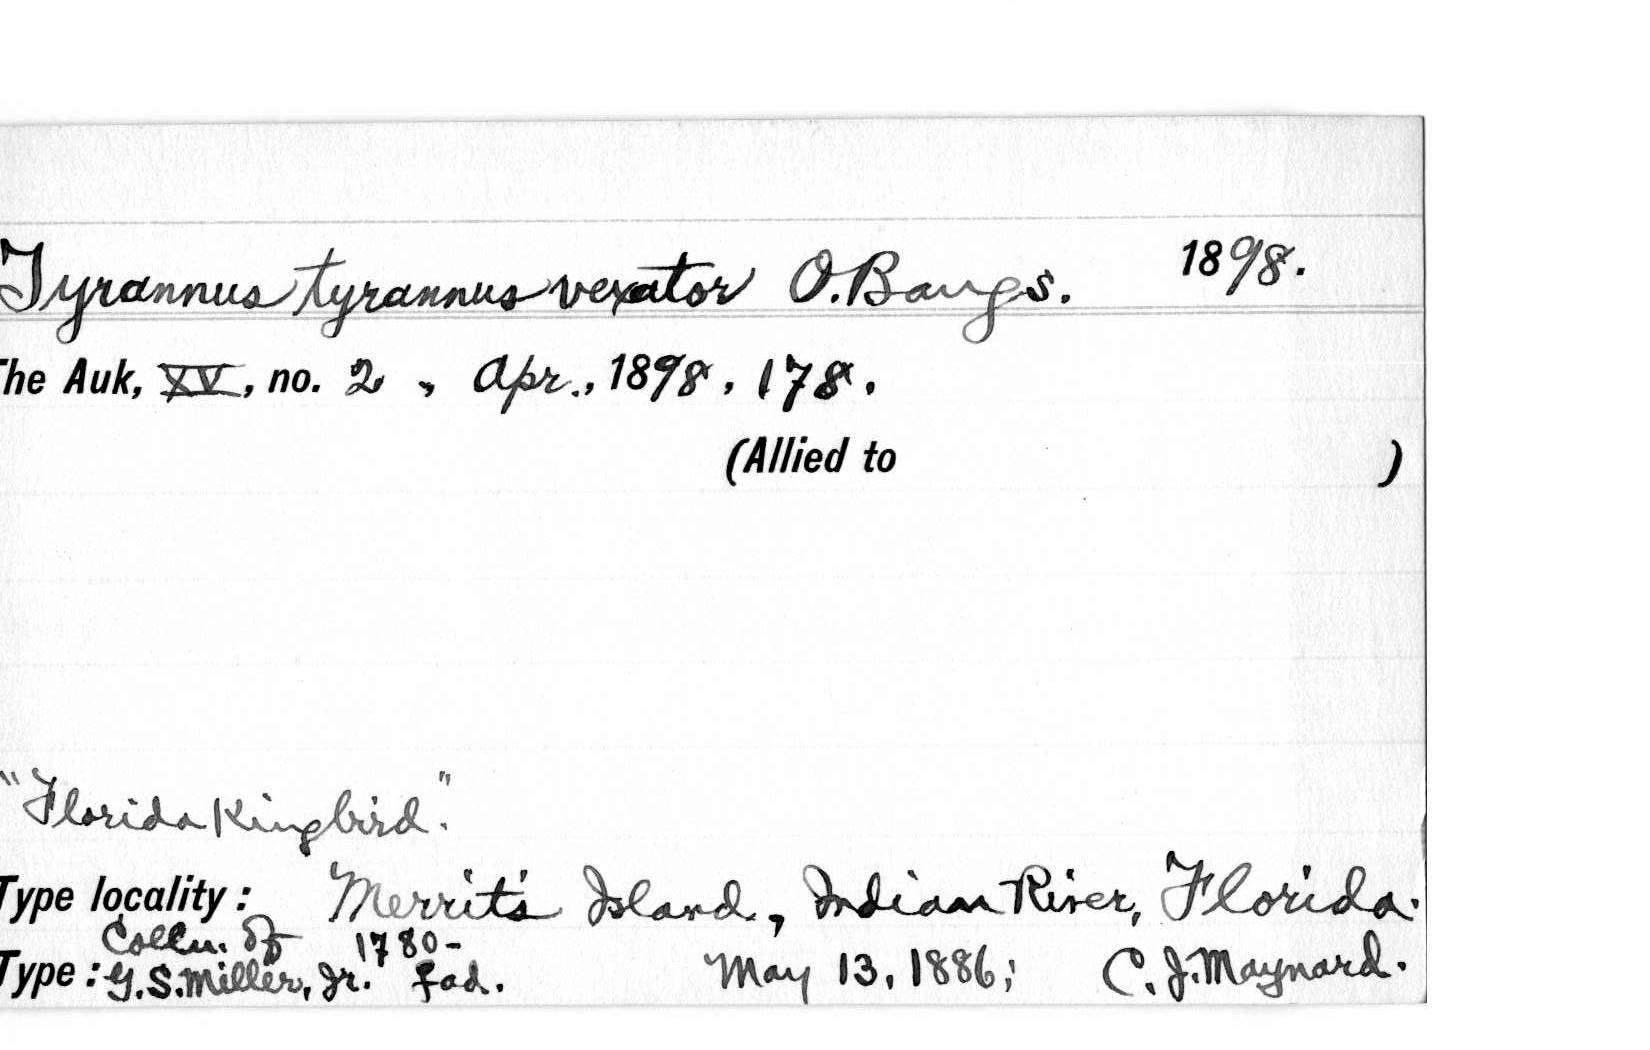 Tyrannus tyrannus vexator O. Bangs. 1898.
The Auk, XV, no. 2, Apr., 1898, 178.
(Allied to )
"Florida Kingbird."
Type locality: Merrit's Island, Indian River, Florida.
Colln. of 1780-
Type: G. S. Miller, Jr. f ad. May 13, 1886; C. J. Maynard.